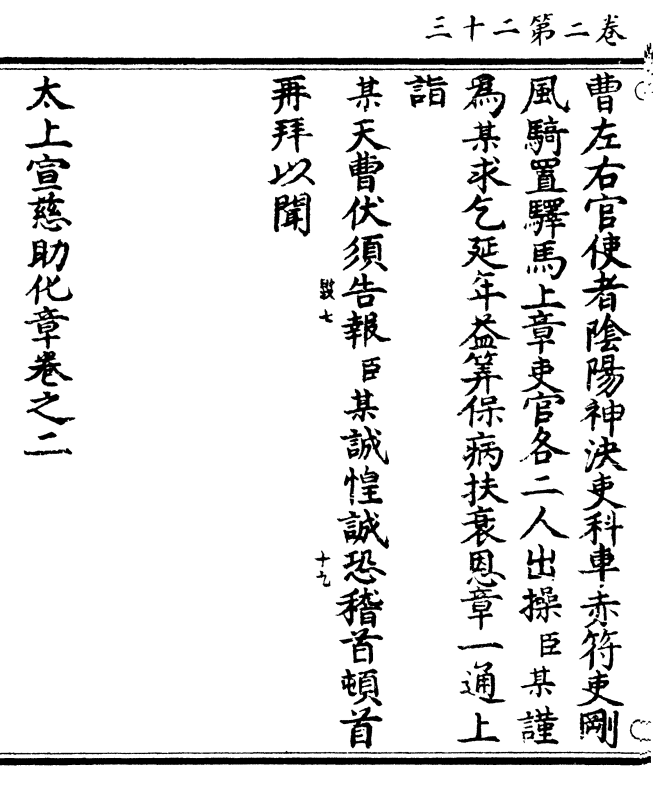 卷二第二十三
曹左右官使者陰陽神決吏科車赤符吏剛
風騎置驛馬上章吏官各二人出操臣某謹
爲某求乞延年益筭保病扶衰恩章一通上
詣
某天曹伏須告報臣某誠惶誠恐稽首頓首
七
十九
再拜以聞
太上宣慈助化章卷之二